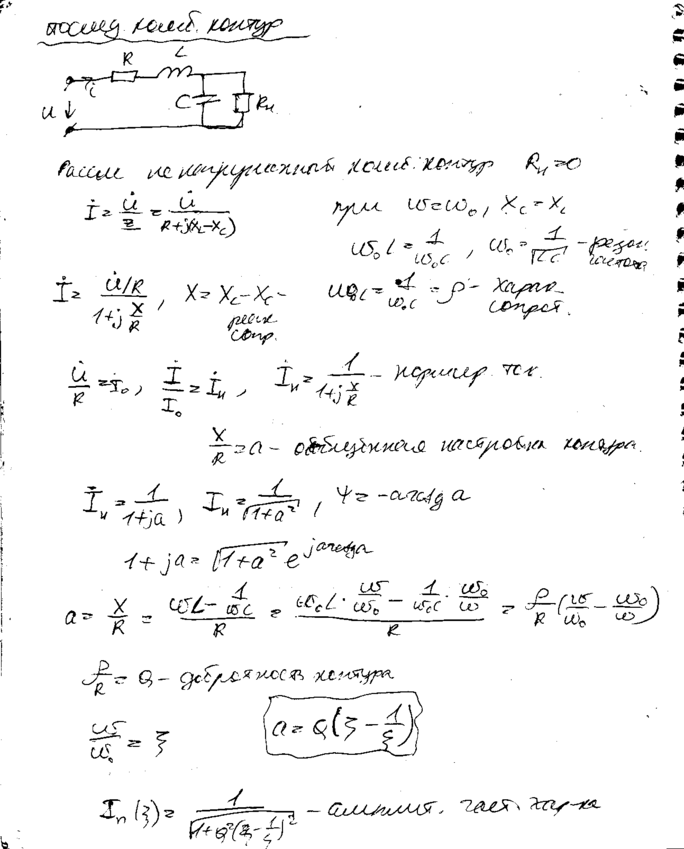 послед. колеб. контур
R L
u i C Rн
Рассм ненагруженный колеб. контур Rн=0
İ = U̇/Z = U̇/(R+j(X_L−X_C)) при ω=ω₀, X_C=X_L
ω₀L = 1/(ω₀C), ω₀ = 1/√(LC) – резон. частота
İ = (U̇/R)/(1+j X/R), X = X_C−X_C – реакт. сопр. ω₀L = 1/(ω₀C) = ρ – харак. сопрот.
U̇/R = İ₀, İ/I₀ = İн, İн = 1/(1+j X/R) – нормир. ток.
X/R = a – обобщённая настройка контура.
İн = 1/(1+ja), Iн = 1/√(1+a²), Ψ = −arctg a
1+ja = √(1+a²) e^(j arctg a)
a = X/R = (ωL − 1/(ωC))/R = (ω₀L · ω/ω₀ − 1/(ω₀C) · ω₀/ω)/R = ρ/R (ω/ω₀ − ω₀/ω)
ρ/R = Q – добротность контура
ω/ω₀ = ξ a = Q(ξ − 1/ξ)
Iн(ξ) = 1/√(1+Q²(ξ − 1/ξ)²) – амплит. част. хар-ка